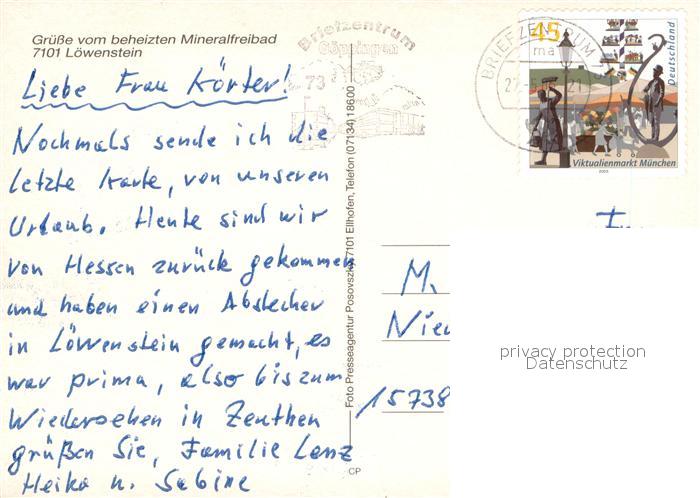 Grüße vom beheizten Mineralfreibad
7101 Löwenstein
Liebe Frau Körter!
Nochmals sende ich die
letzte Karte, von unseren
Urlaub. Heute sind wir
von Hessen zurück gekommen
und haben einen Abstecher
in Löwenstein gemacht, es
war prima, also bis zum
Wiedersehen in Zeuthen
grüßen Sie, Familie Lenz
Heiko u. Sabine
Foto Presseagentur Posovszky, 7101 Ellhofen, Telefon (07134) 18600
CP
Briefzentrum
Göppingen
73
BRIEFZENTRUM
45
Deutschland
Viktualienmarkt München
2003
M.
15738
privacy protection
Datenschutz